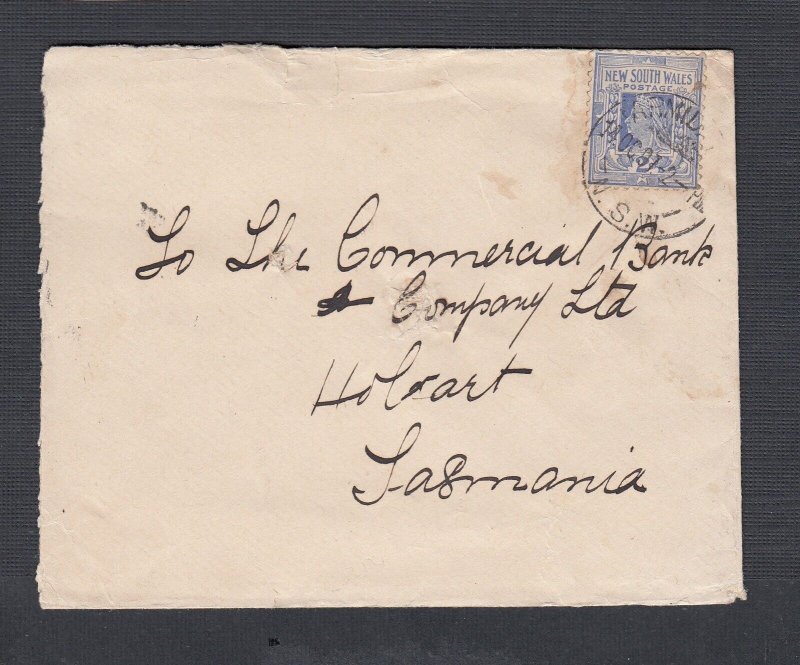 NEW SOUTH WALES
POSTAGE
N.S.W.
To The Commercial Bank
& Company Ltd
Hobart
Tasmania